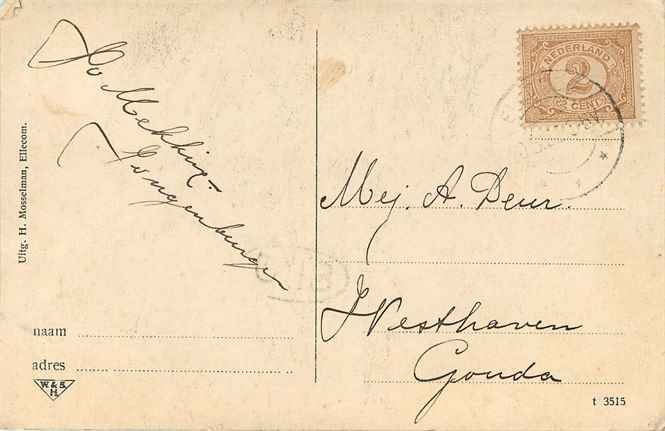 Uitg. H. Mosselman, Ellecom.
Jo Mekking-
Jongenburger
naam
adres
W. & S.
H.
NEDERLAND
2
CENT
Mej. A. Deur.
Westhaven
Gouda
t 3515